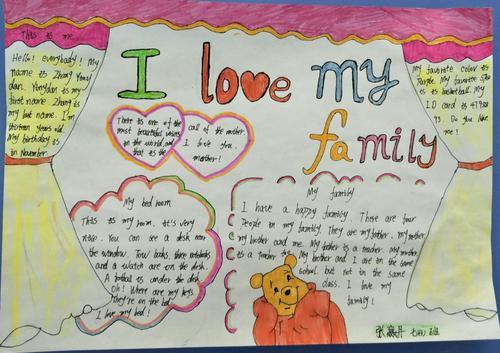 I love my
family
This is me
Hello! everybody! My
name is Zhang Yong
dan. Yongdan is my
first name. Zhang is
my last name. I'm
thirteen years old.
My birthday is
in November.
My favorite color is
Purple. My favorite Spor
is basketball. My
I.D card is
Do you like
me!
There is one of the
most beautiful voices
in the world, and
that is the
call of the mother.
I love you,
mother!
My bed room
This is my room. It's very
nice. You can see a desk near
the window. Four books, three notebooks
and a watch are on the desk.
A football is under the desk
Oh! Where are my keys
They're on the bed
I love my bed!
My family
I have a happy family. There are four
people in my family. They are my father, my mother,
my brother and me. My father is a teacher. My mother
is a teacher too. My brother and I are in the same
school. but not in the same
class. I love my
family!